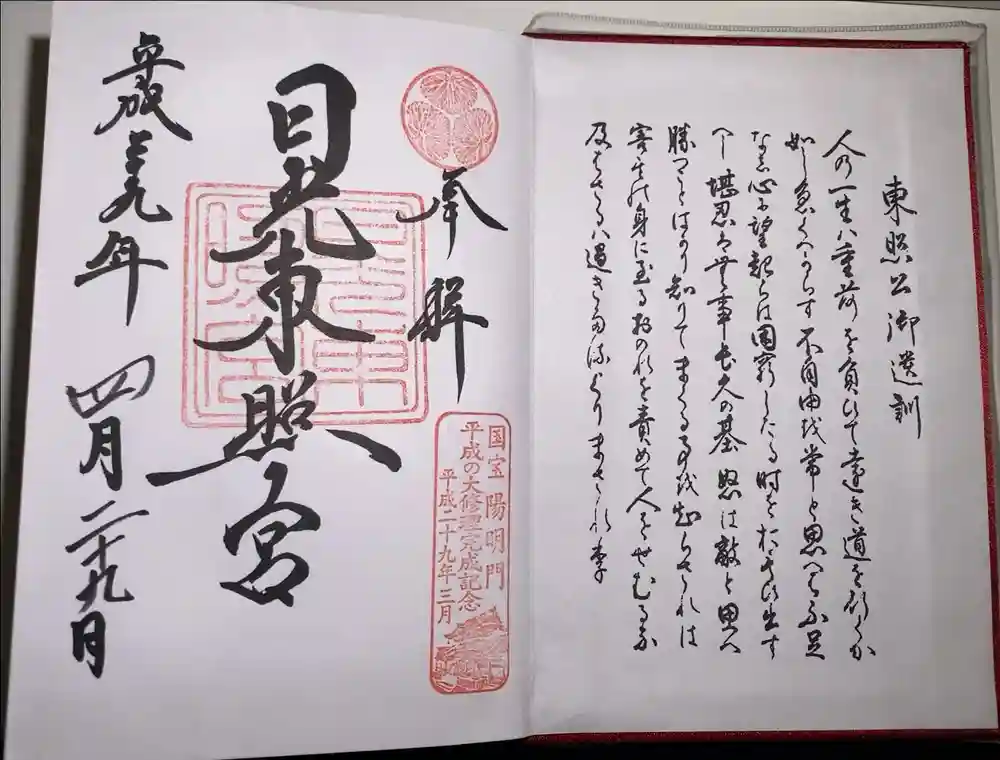 東照公御遺訓
人の一生は重荷を負ひて遠き道を行くか
如し急くへからす不自由を常と思へは不足
なし心に望起らは困窮したる時をおもひ出す
へし堪忍は無事長久の基怒は敵と思へ
勝つことはかり知りてまくる事を知らされは
害其の身に至るおのれを責めて人をせむるな
及はさるは過きたるよりまされり
奉拝
国宝陽明門
平成の大修理完成記念
平成二十九年三月
日光東照宮
平成二十九年四月二十九日